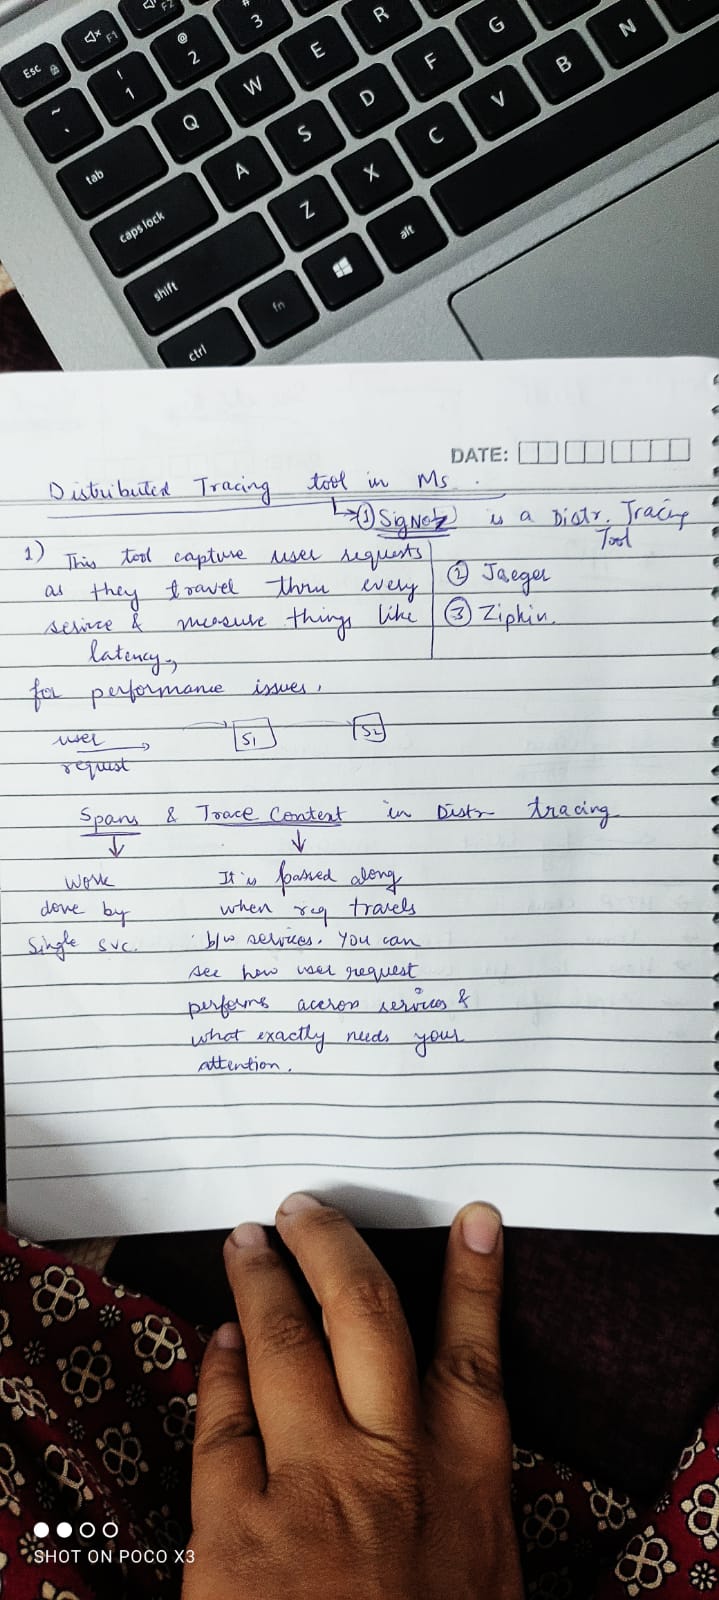 Esc
F1
F2
~
`
!
1
@
2
#
3
tab
Q
W
E
R
caps lock
A
S
D
F
G
shift
Z
X
C
V
B
N
ctrl
fn
alt
DATE:
Distributed Tracing tool in Ms.
① SigNoz is a Distr. Tracing
Tool
② Jaeger
③ Zipkin.
1) This tool capture user requests
as they travel thru every
service & measure things like
latency,
for performance issues.
user
request
S1
S2
Spans & Trace Context in Distr tracing
Work
done by
Single svc.
It is passed along
when req travels
b/w services. You can
see how user request
performs accross services &
what exactly needs your
attention.
SHOT ON POCO X3